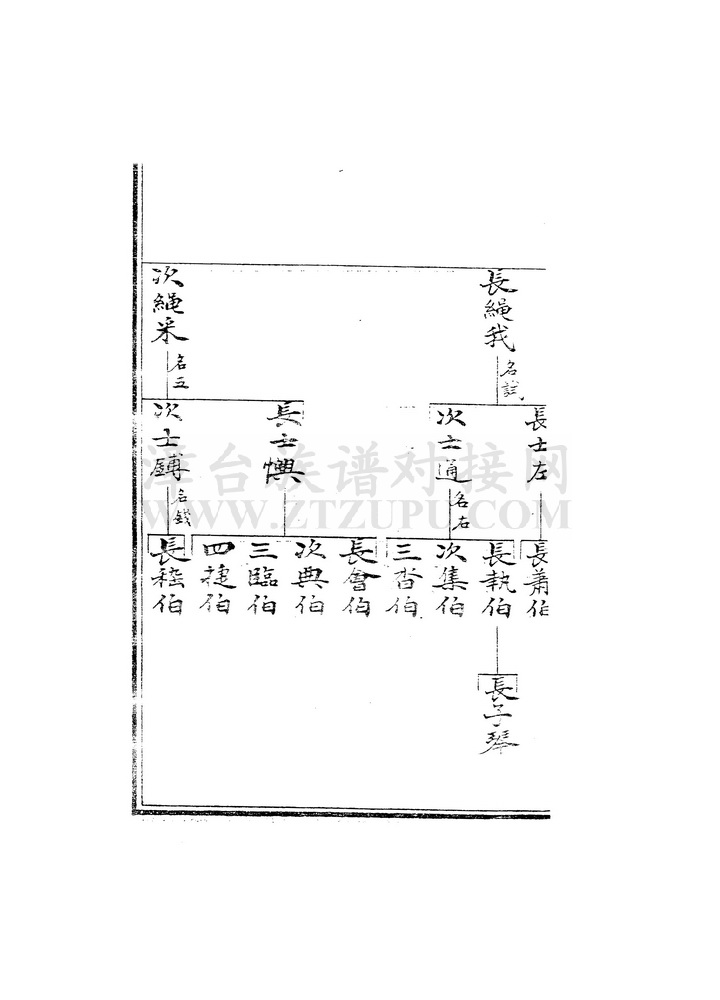 長繩我
名試
次繩采
名五
長士左
次士通
名右
長士懊
次士鏄
名錢
長蕭伯
長執伯
次集伯
三沓伯
長會伯
次典伯
三臨伯
四捷伯
長嵇伯
長子琴
漳台族谱对接网
WWW.ZTZUPU.COM